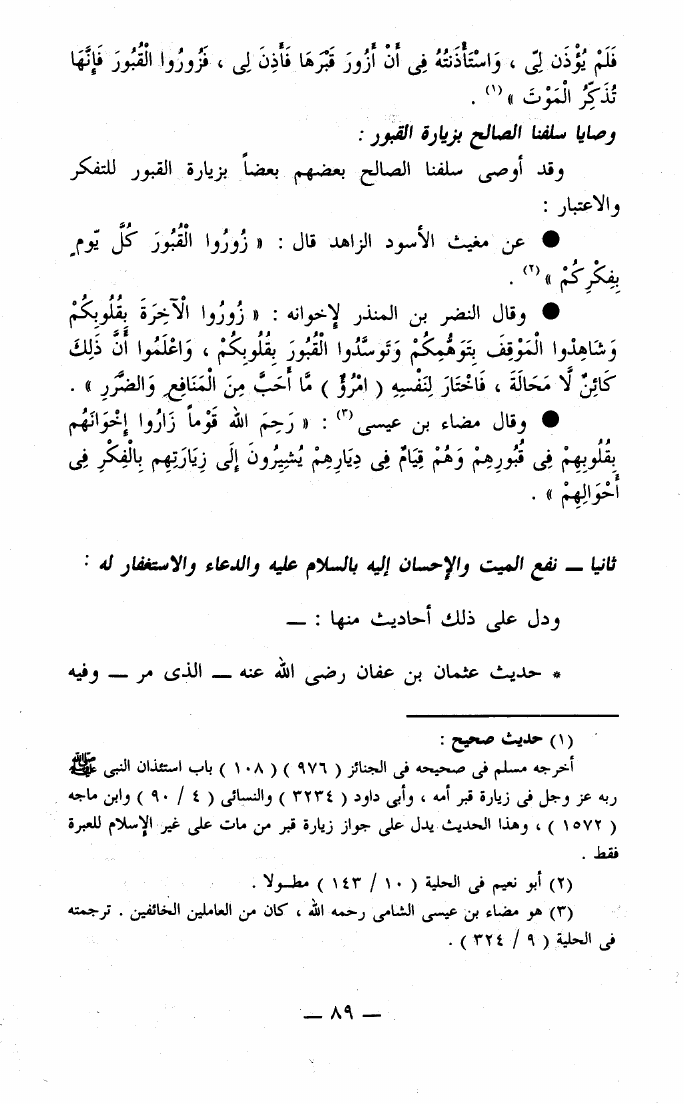 فَلَمْ يُؤْذَن لِّى ، وَاسْتَأْذَنتُهُ فِى أَنْ أَزُورَ قَبْرَهَا فَأَذِنَ لِى ، فَزُورُوا الْقُبُورَ فَإِنَّهَا
تُذَكِّرُ الْمَوْتَ » (١) .
وصايا سلفنا الصالح بزيارة القبور :
وقد أوصى سلفنا الصالح بعضهم بعضاً بزيارة القبور للتفكر
والاعتبار :
● عن مغيث الأسود الزاهد قال : « زُورُوا الْقُبُورَ كُلَّ يَوْمٍ
بِفِكْرِكُمْ » (٢) .
● وقال النضر بن المنذر لإخوانه : « زُورُوا الْآخِرَةَ بِقُلُوبِكُمْ
وَشَاهِدُوا الْمَوْقِفَ بِتَوَهُّمِكُمْ وَتَوَسَّدُوا الْقُبُورَ بِقُلُوبِكُمْ ، وَاعْلَمُوا أَنَّ ذَلِكَ
كَائِنٌ لَّا مَحَالَةَ ، فَاخْتَارَ لِنَفْسِهِ ( امْرُؤٌ ) مَّا أَحَبَّ مِنَ الْمَنَافِعِ وَالضَّرَرِ » .
● وقال مضاء بن عيسى (٣) : « رَحِمَ الله قَوْماً زَارُوا إِخْوَانَهُم
بِقُلُوبِهِمْ فِى قُبُورِهِمْ وَهُمْ قِيَامٌ فِى دِيَارِهِمْ يُشِيرُونَ إِلَى زِيَارَتِهِم بِالْفِكْرِ فِى
أَحْوَالِهِمْ » .
ثانيا ــ نفع الميت والإحسان إليه بالسلام عليه والدعاء والاستغفار له :
ودل على ذلك أحاديث منها : ــ
* حديث عثمان بن عفان رضى الله عنه ــ الذى مر ــ وفيه
(١) حديث صحيح :
أخرجه مسلم فى صحيحه فى الجنائز ( ٩٧٦ ) ( ١٠٨ ) باب استئذان النبى ﷺ
ربه عز وجل فى زيارة قبر أمه ، وأبى داود ( ٣٢٣٤ ) والنسائى ( ٤ / ٩٠ ) وابن ماجه
( ١٥٧٢ ) ، وهذا الحديث يدل على جواز زيارة قبر من مات على غير الإسلام للعبرة
فقط .
(٢) أبو نعيم فى الحلية ( ١٠ / ١٤٣ ) مطـولا .
(٣) هو مضاء بن عيسى الشامى رحمه الله ، كان من العاملين الخائفين . ترجمته
فى الحلية ( ٩ / ٣٢٤ ) .
ــ ٨٩ ــ